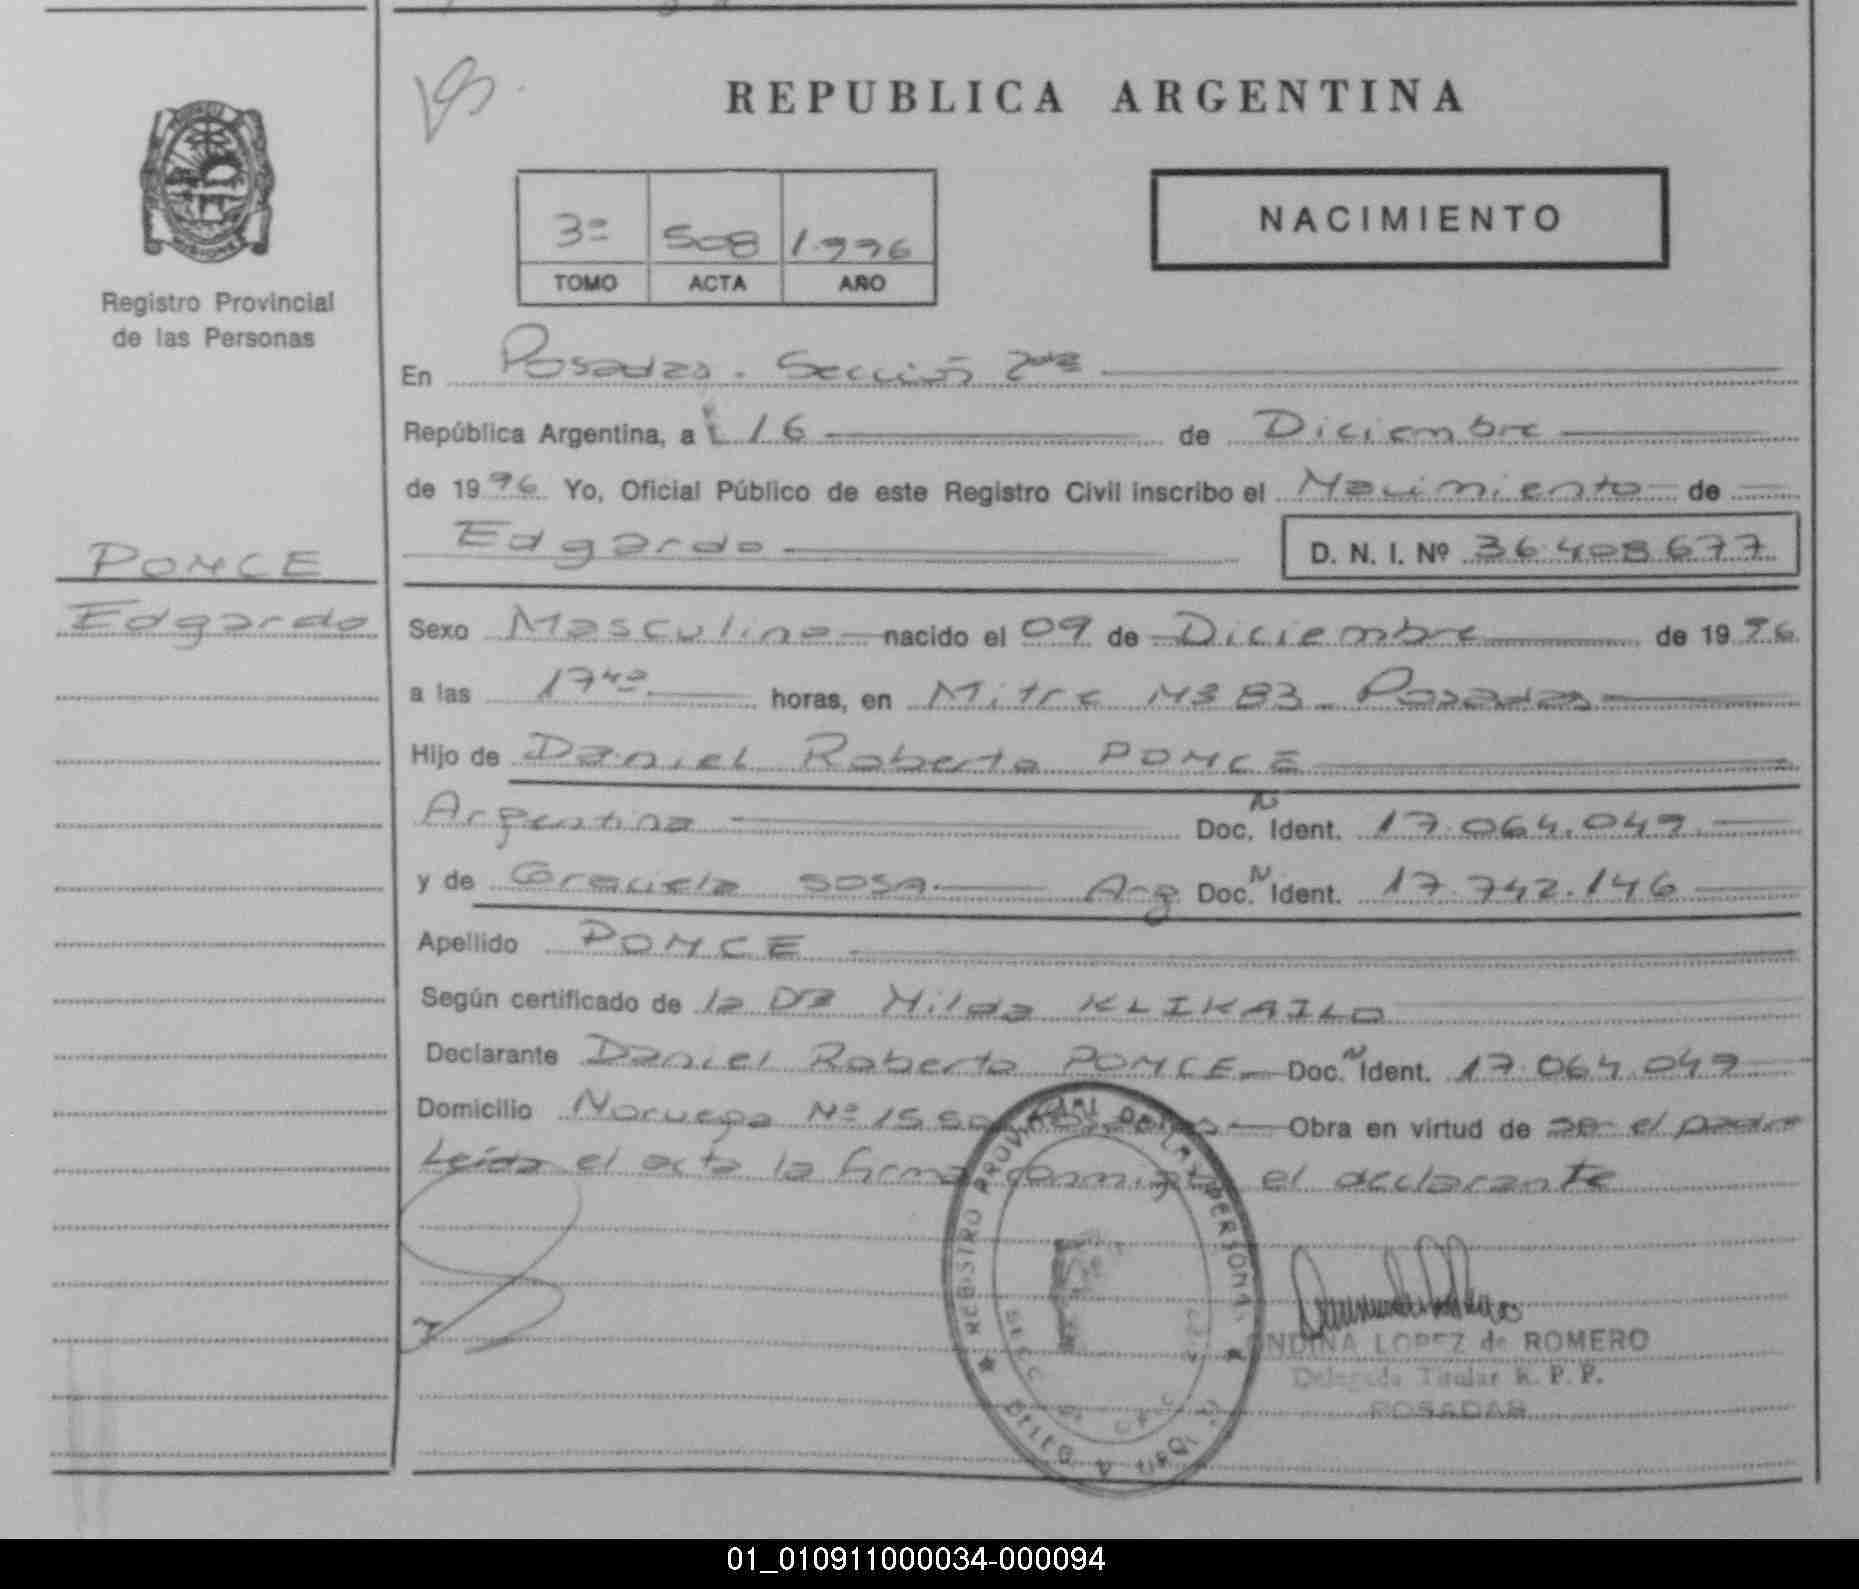 REPUBLICA ARGENTINA
NACIMIENTO
3º 508 1.996
TOMO ACTA AÑO
Registro Provincial
de las Personas
En Posadas. Sección 2da
República Argentina, a 16 de Diciembre
de 1996 Yo, Oficial Público de este Registro Civil inscribo el Nacimiento de
Edgardo D. N. I. Nº 36.408.677
PONCE
Edgardo
Sexo Masculino nacido el 09 de Diciembre de 1996
a las 17 40 horas, en Mitre Nº 83 Posadas
Hijo de Daniel Roberto PONCE
Argentina Doc. N Ident. 17.064.049
y de Graciela SOSA Arg Doc. N Ident. 17.742.146
Apellido PONCE
Según certificado de la Dra Hilda KLIKAILO
Declarante Daniel Roberto PONCE Doc. N Ident. 17.064.049
Domicilio Noruega Nº Obra en virtud de ser el padre
Leída el acta la firma conmigo el declarante
REGISTRO PROVINCIAL DE LAS PERSONAS
LOPEZ de ROMERO
Delegada Titular R. P. P.
POSADAS
01_010911000034-000094